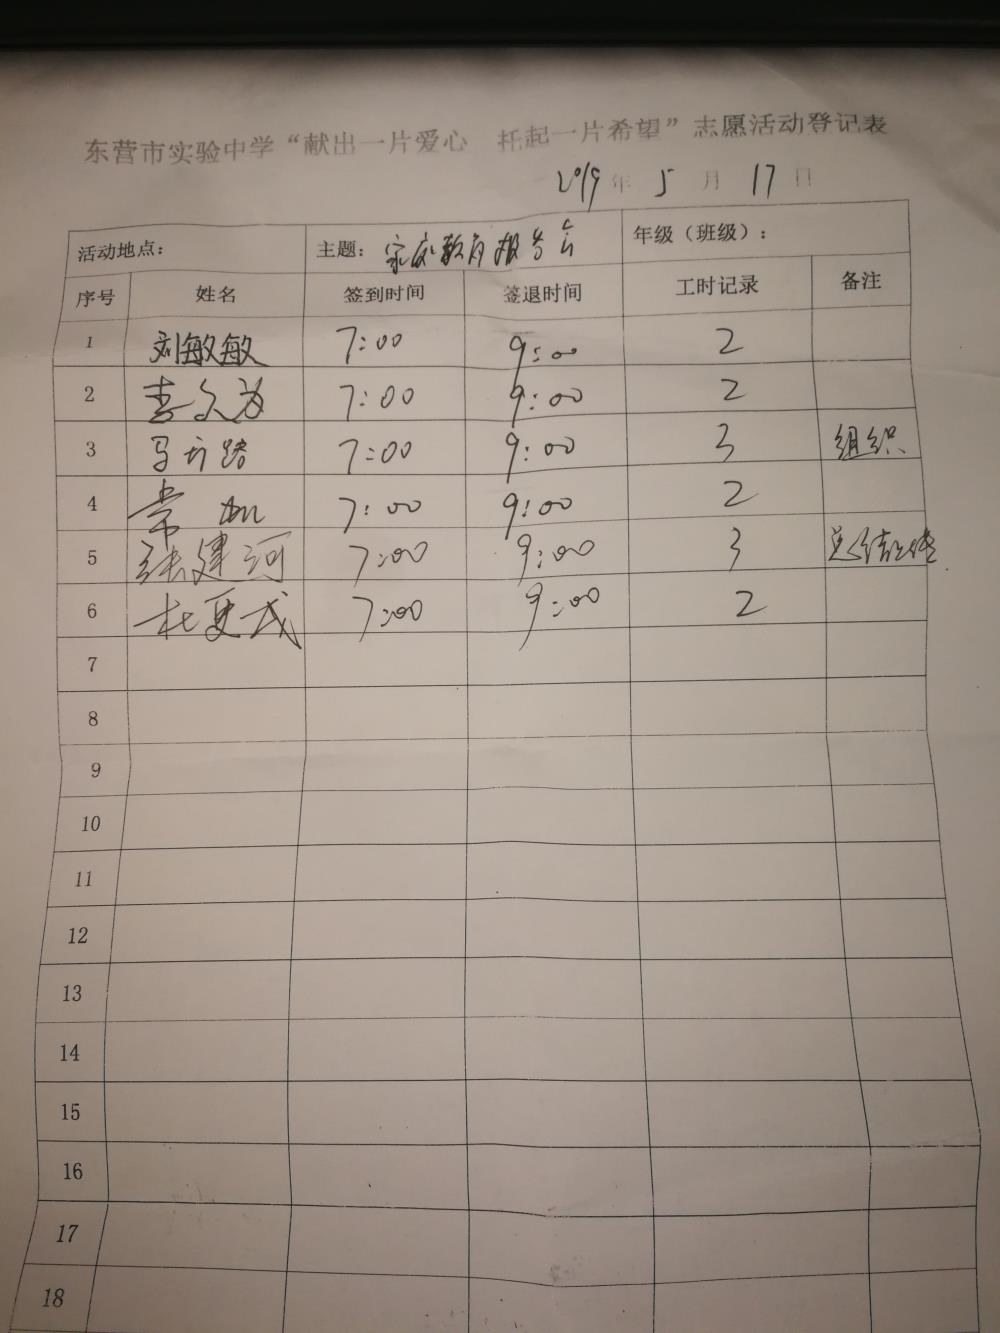 东营市实验中学“献出一片爱心 托起一片希望”志愿活动登记表
2019 年 5 月 17 日
活动地点： 主题：家庭教育报告会 年级（班级）：
序号 姓名 签到时间 签退时间 工时记录 备注
1 刘敏敏 7:00 9:00 2
2 7:00 9:00 2
3 马 路 7:00 9:00 3 组织
4 常 7:00 9:00 2
5 张建河 7:00 9:00 3 总结
6 杜更 7:00 9:00 2
7
8
9
10
11
12
13
14
15
16
17
18